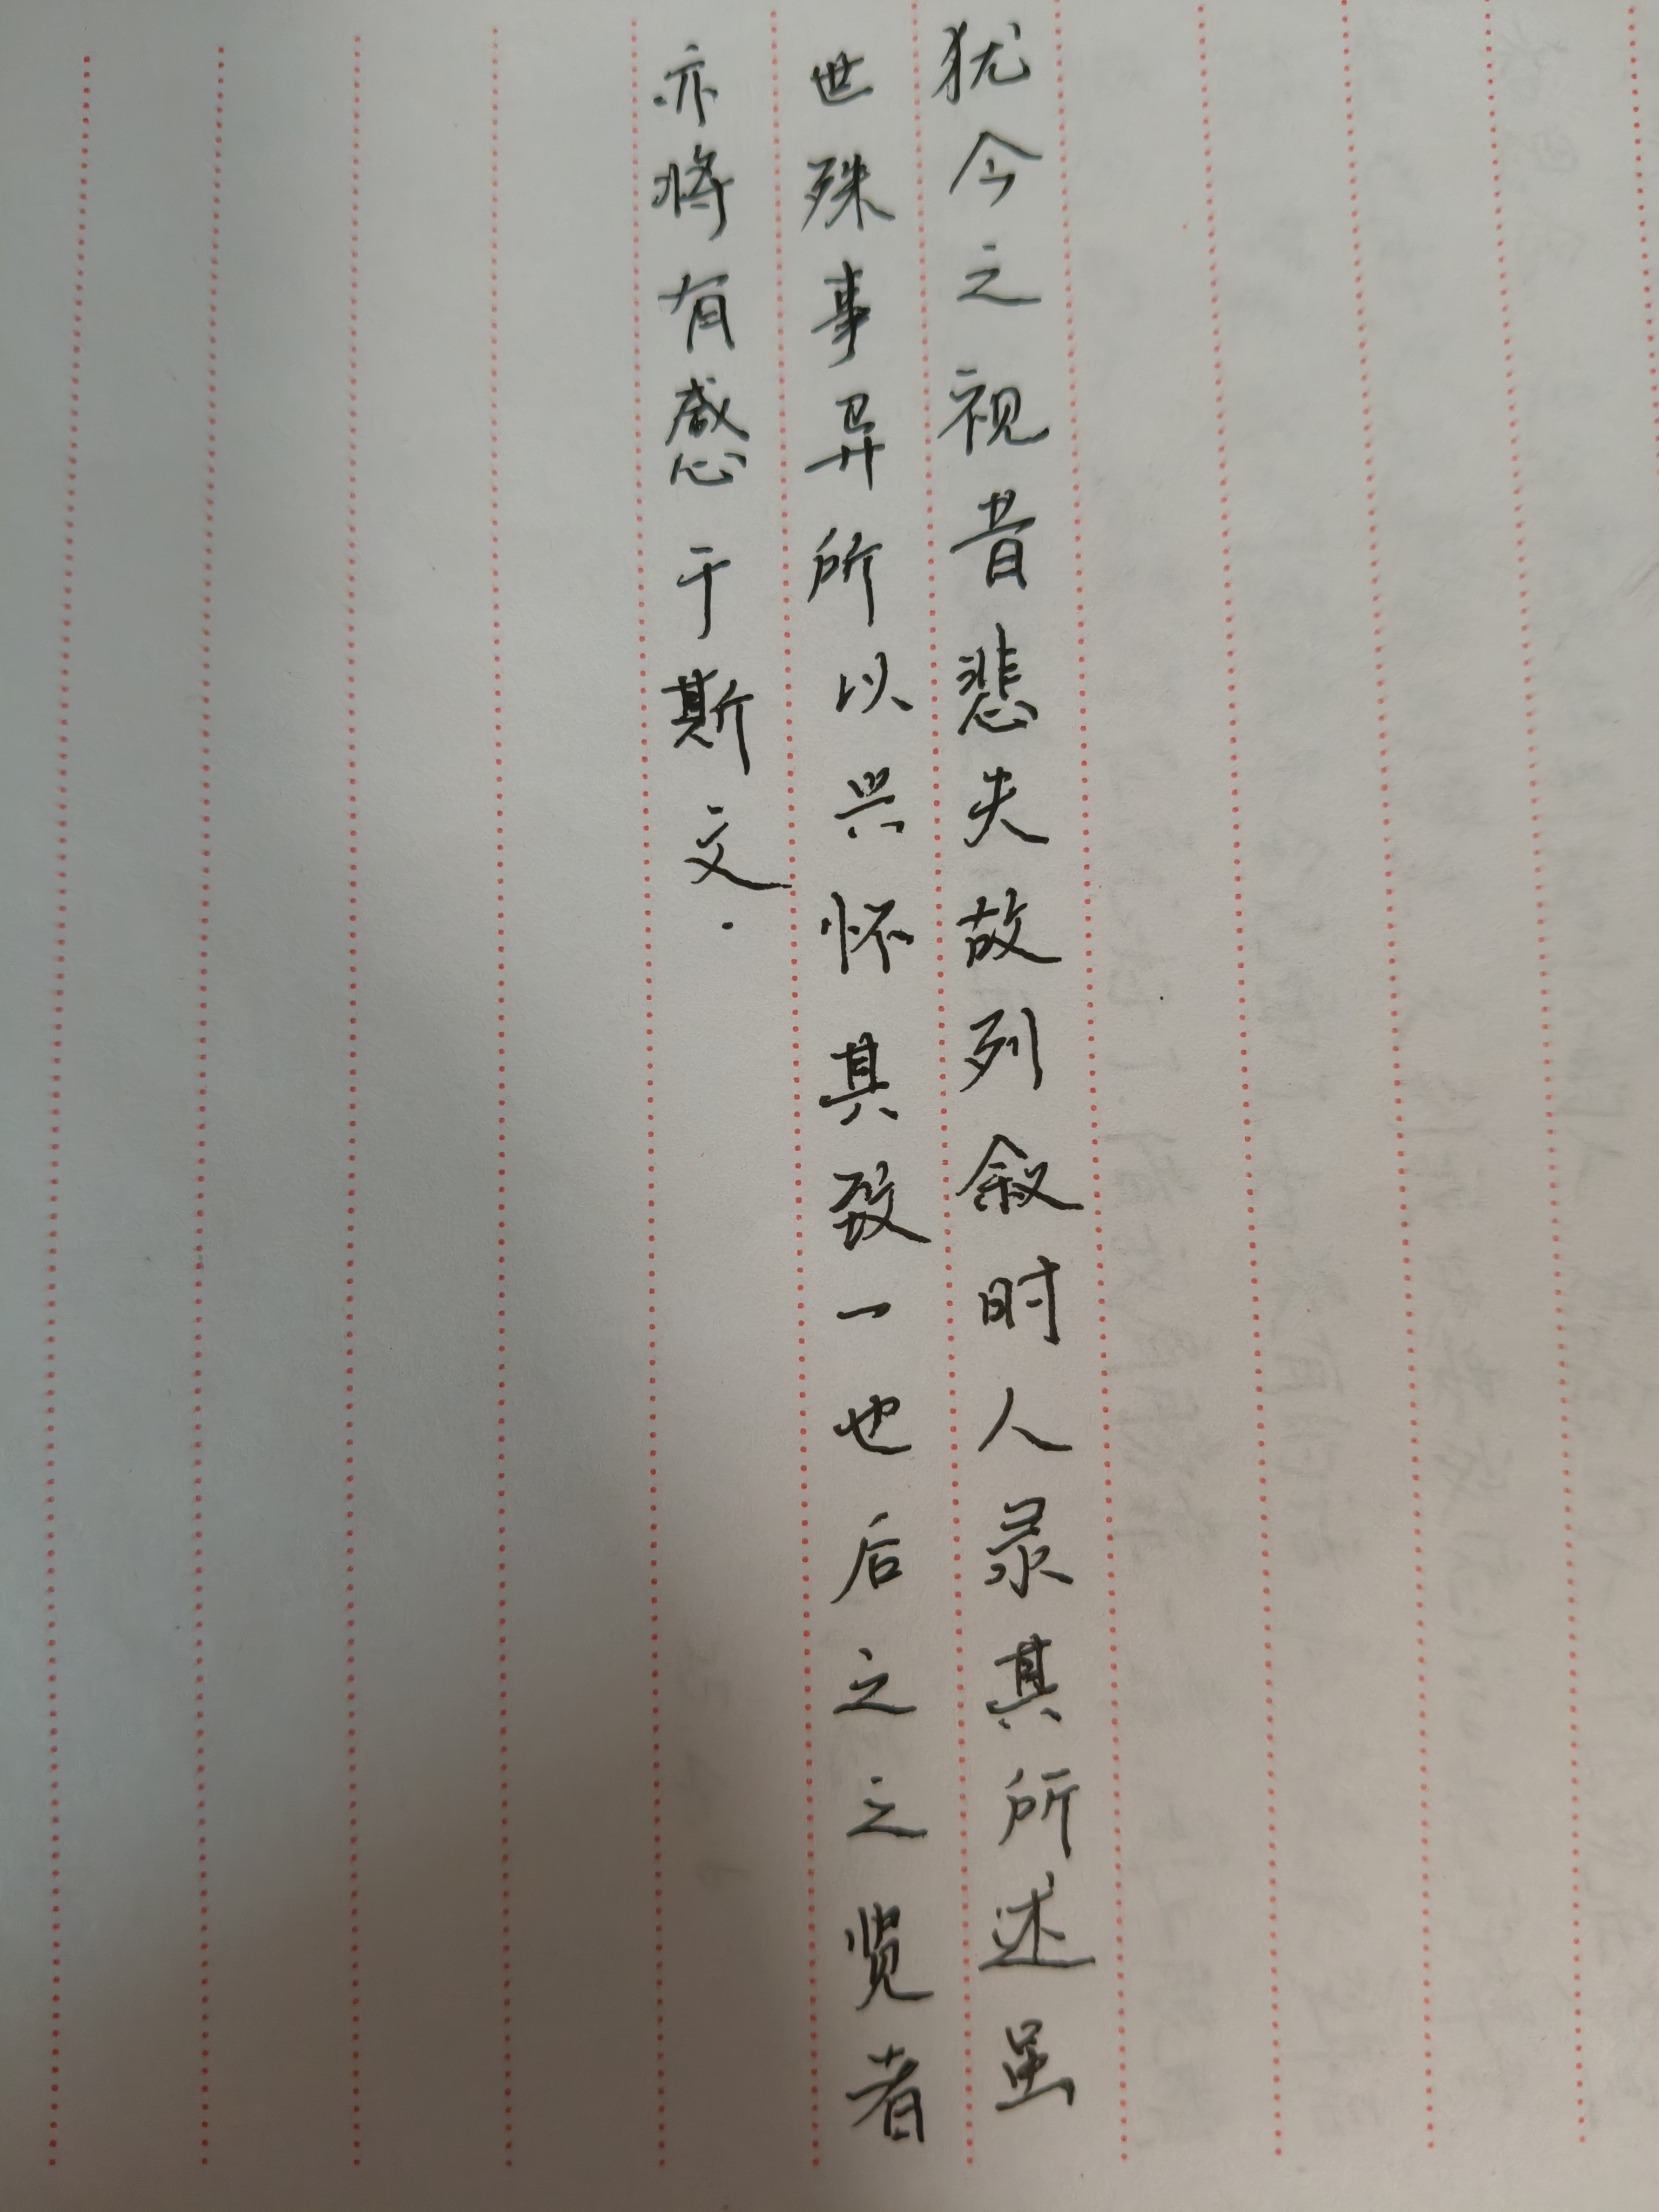 犹今之视昔悲夫故列叙时人录其所述虽
世殊事异所以兴怀其致一也后之之览者
亦将有感于斯文.